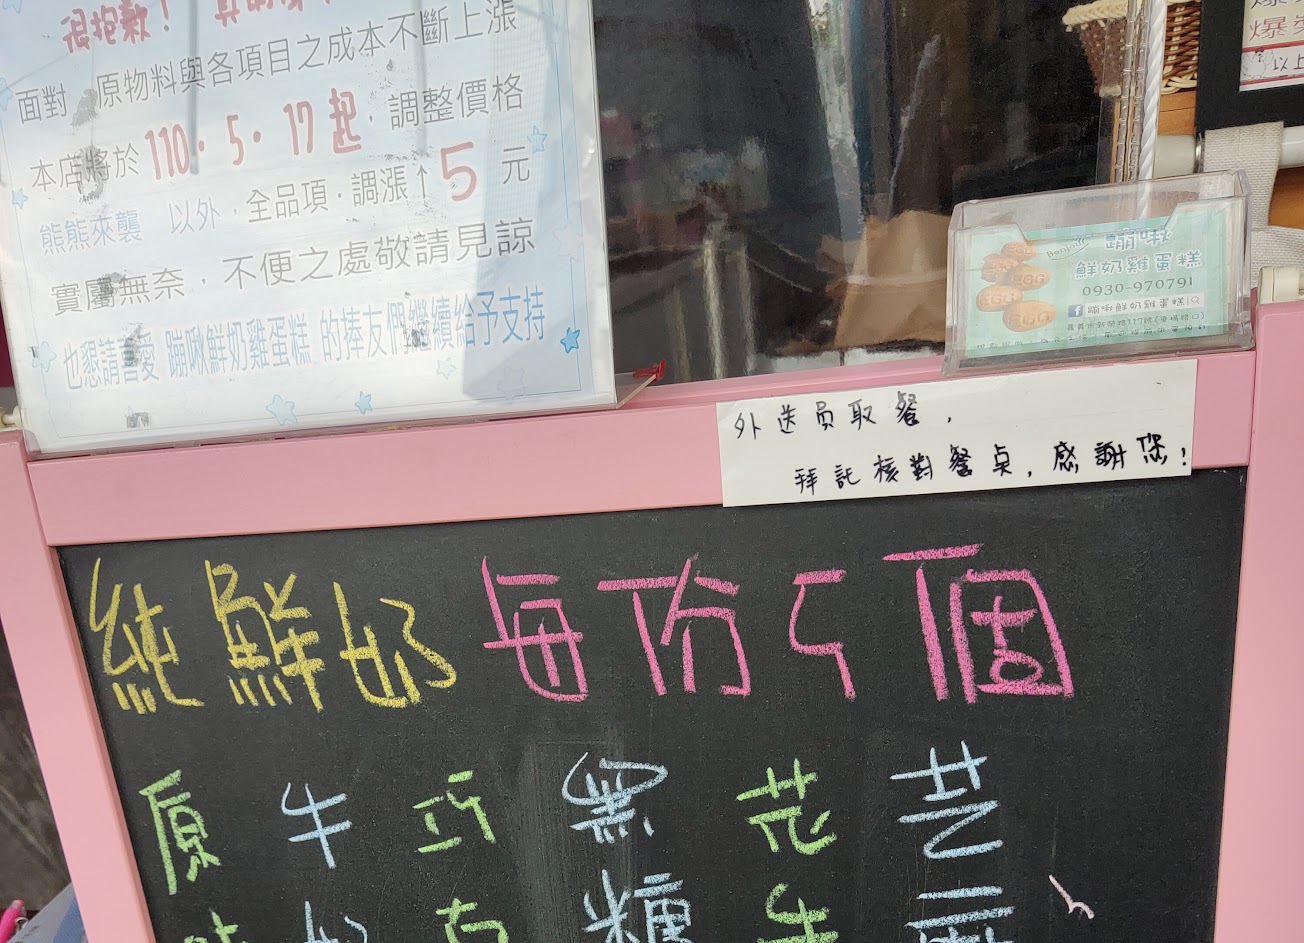 很抱歉！
面對 原物料與各項目之成本不斷上漲
本店將於110.5.17起，調整價格
熊熊來襲 以外，全品項，調漲↑5元
實屬無奈，不便之處敬請見諒
也懇請喜愛 蹦啾鮮奶雞蛋糕 的捧友們繼續給予支持
蹦啾
鮮奶雞蛋糕
0930-970791
蹦啾鮮奶雞蛋糕
外送員取餐，
拜託核對餐桌，感謝您！
純鮮奶每份5個
原 牛 巧 黑 花 芝
糖